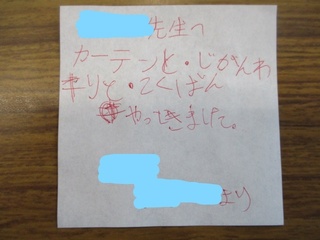 先生へ
カーテンと・じかんわ
りと・こくばん
やってきました。
より